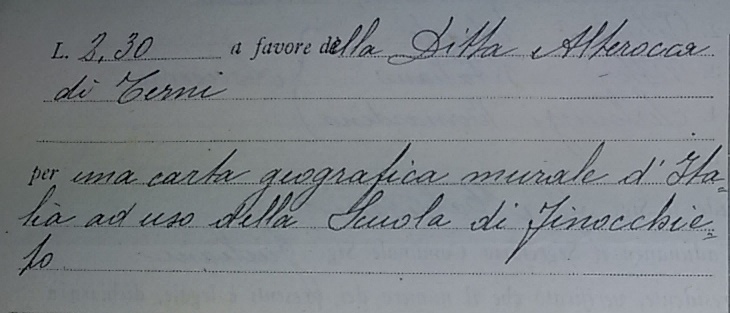 L. 2,30 a favore della Ditta Alterocca
di Terni
per una carta geografica murale d'Ita=
lia ad uso della Scuola di Finocchie=
to